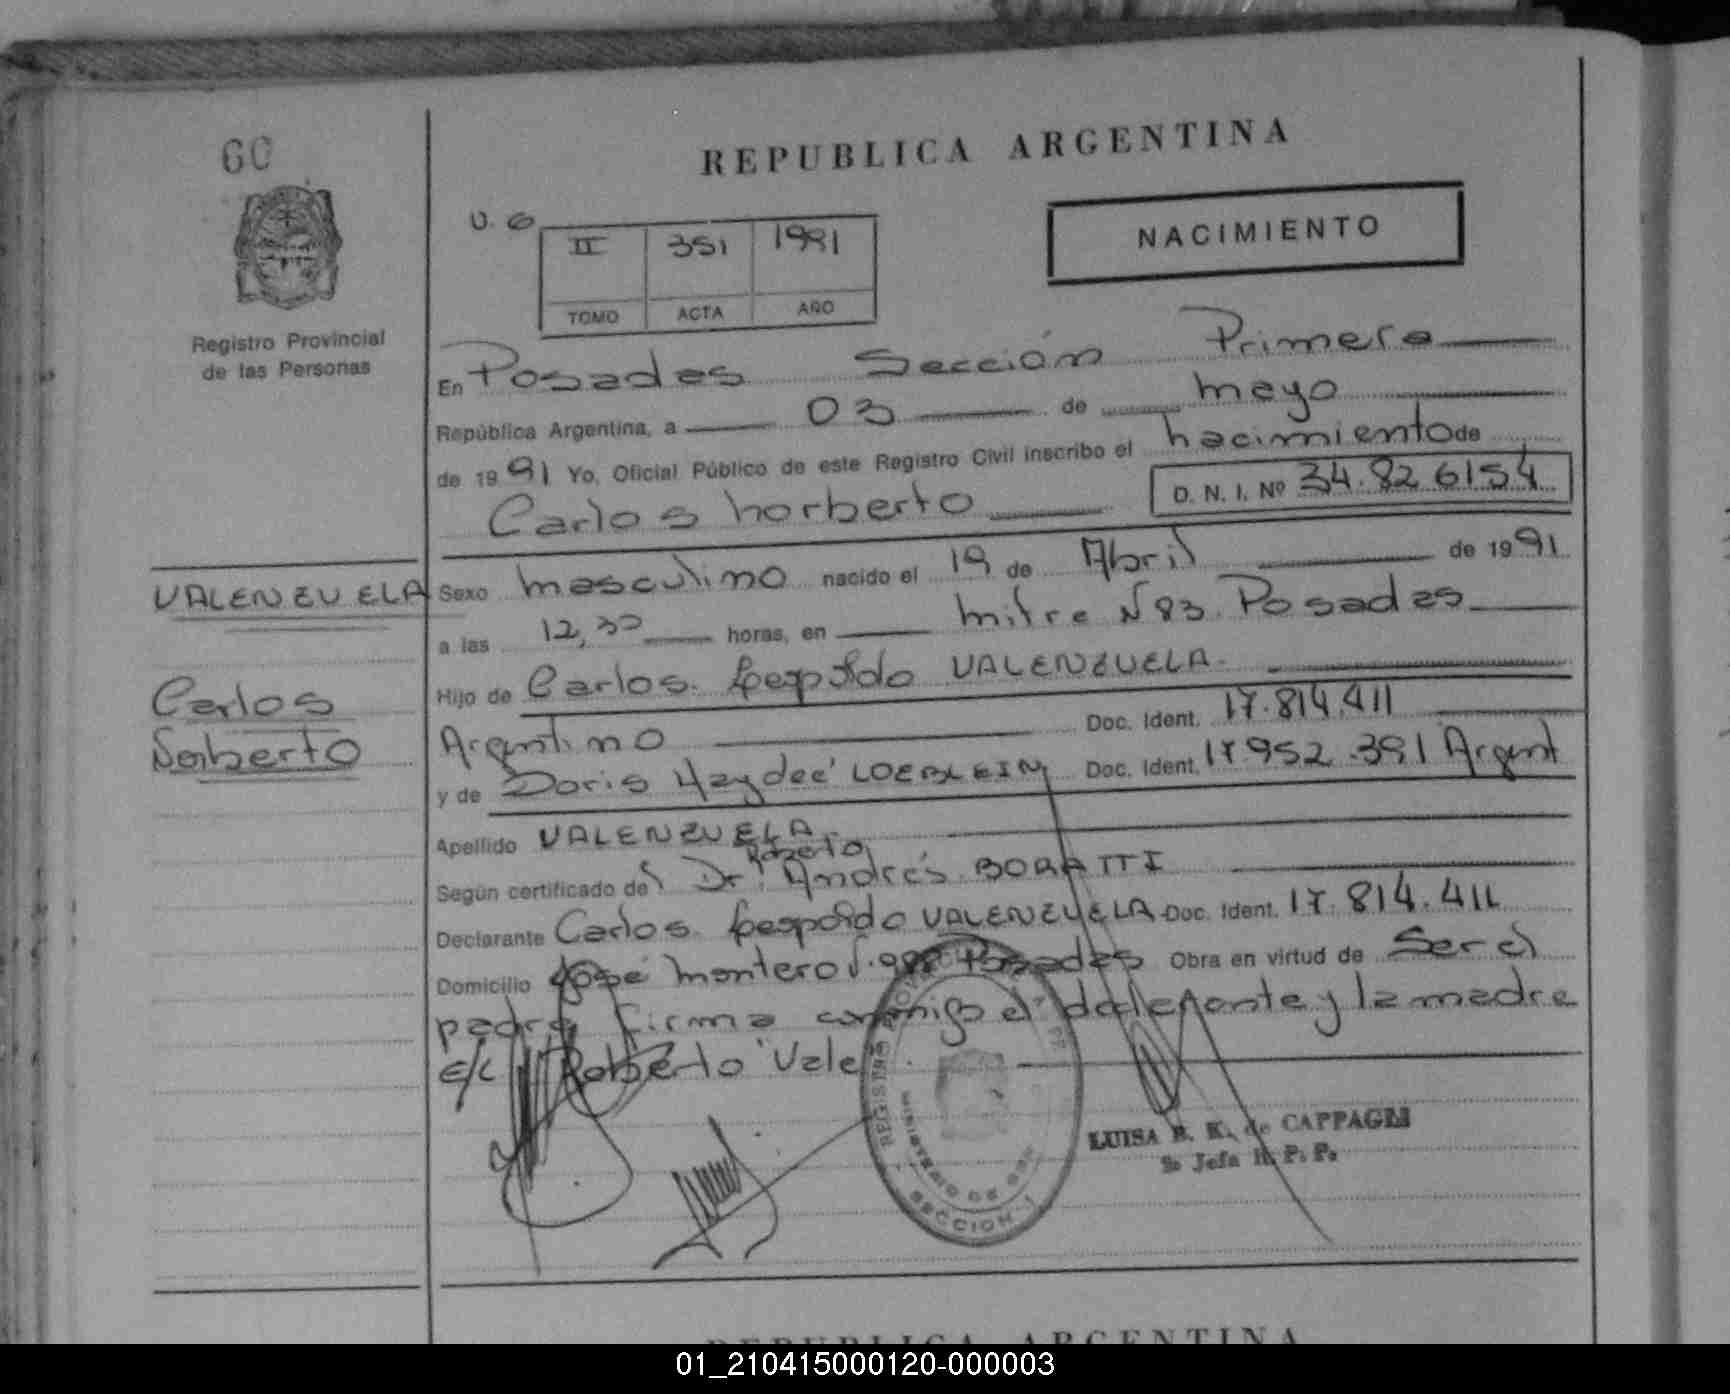 60
REPUBLICA ARGENTINA
NACIMIENTO
Registro Provincial
de las Personas
U. 6
II 351 1991
TOMO ACTA AÑO
En Posadas Sección Primera
República Argentina, a 03 de mayo
de 1991 Yo, Oficial Público de este Registro Civil inscribo el nacimiento de
Carlos Norberto D. N. I. Nº 34.826154
VALENZUELA
Carlos
Norberto
Sexo masculino nacido el 19 de Abril de 1991
a las 12,30 horas, en Mitre N 83. Posadas
Hijo de Carlos Leopoldo VALENZUELA
Argentino Doc. Ident. 17.814.411
y de Doris Haydeé LOEBLEIN Doc. Ident. 17.952.391 Argent
Apellido VALENZUELA
Roberto
Según certificado del Dr. Andrés BORATTI
Declarante Carlos Leopoldo VALENZUELA Doc. Ident. 17.814.411
Domicilio José Montero Posadas Obra en virtud de Ser el
padre firma conmigo el declarante y la madre
E/L Roberto Vale
REGISTRO PROVINCIAL DE
MINISTERIO DE GOB
SECCION 1
LUISA B. K. de CAPPAGLI
Jefa R. P. P.
REPUBLICA ARGENTINA
01_210415000120-000003